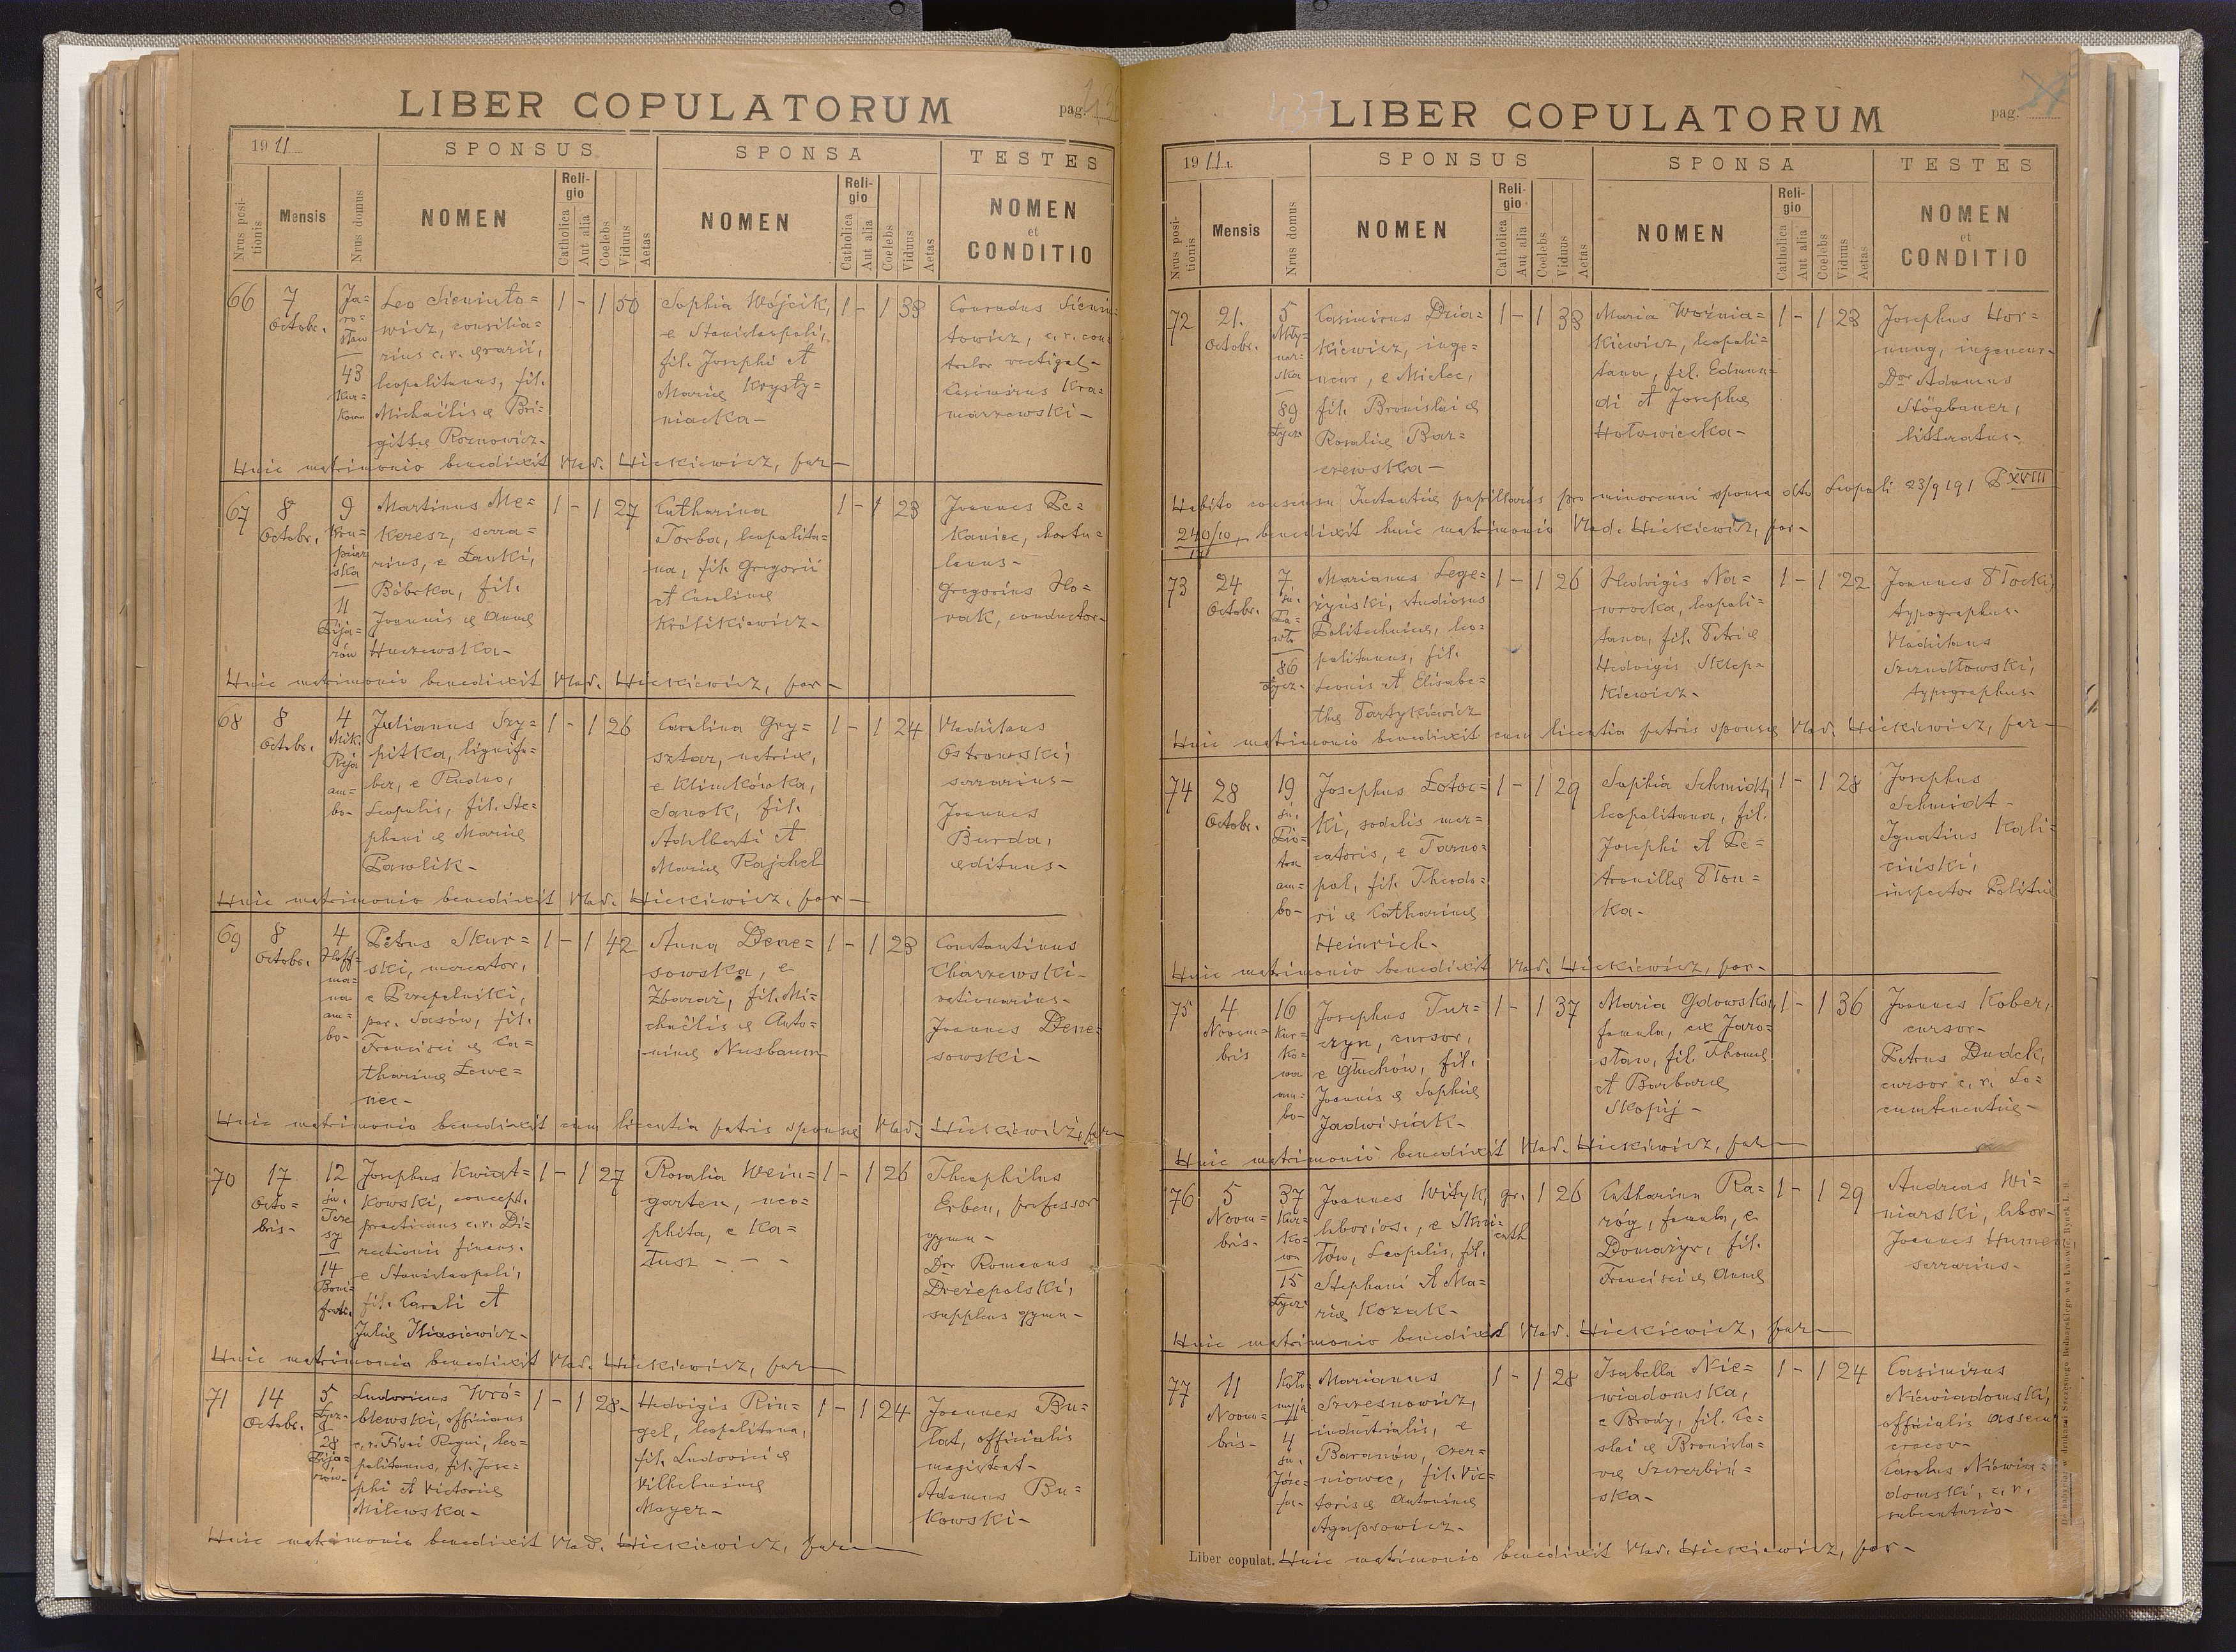 LIBER COPULATORUM
pag.
1911
SPONSUS
SPONSA
TESTES
Nrus positionis
Mensis
Nrus domus
NOMEN
Religio
Catholica
Aut alia
Coelebs
Viduus
Aetas
NOMEN
Religio
Catholica
Aut alia
Coelebs
Viduus
Aetas
NOMEN
et
CONDITIO
66
7
Octobr.
Ja=
ro=
sław
43
Kur=
kowa
Leo Sieniuto=
wicz, consilia=
rius c. r. ærarii,
leopolitanus, fil.
Michaëlis & Bri=
gittæ Roznowicz-
1 - 1 50
Sophia Wójcik,
e Stanislaopoli,
fil. Josephi et
Mariæ Krysty=
niacka-
1 - 1 38
Conradus Sieniu=
towicz, c. r. con
trolor vectigal-
Casimirus Kra=
marzewski-
Huic matrimonio benedixit Vlad. Hickiewicz, par-
67
8
Octobr.
9
Kru=
piar
ska
11
Żyża=
rów
Martinus Me=
keresz, serra=
rius, e Łanki,
Bóbrka, fil.
Joannis & Annæ
Huczewska-
1 - 1 27
Catharina
Torba, leopolita=
na, fil. Gregorii
et Carolinæ
Królikiewicz-
1 - 1 23
Joannes Pe=
kaniec, hortu=
lanus-
Gregorius Ho=
rak, conductor-
Huic matrimonio benedixit Vlad. Hickiewicz, par-
68
8
Octobr.
4
Mik.
Reja
am=
bo-
Julianus Szy=
pitka, lignifa=
ber, e Rudno,
Leopolis, fil. Ste=
phani & Mariæ
Pawlik-
1 - 1 26
Carolina Gry=
sztar, netrix,
e Klimkówka,
Sanok, fil.
Adalberti et
Mariæ Rajchel
1 - 1 24
Vladislaus
Ostrowski,
serrarius-
Joannes
Burda,
ædituus-
Huic matrimonio benedixit Vlad. Hickiewicz, par-
69
8
Octobr.
4
Hoff=
ma=
na
am=
bo-
Petrus Skur=
ski, mercator,
e Przepelniki,
par. Sasów, fil.
Francisci & Ca=
tharinæ Lewe=
nec-
1 - 1 42
Anna Dene=
sowska, e
Zbaraż, fil. Mi=
chaëlis & Anto=
ninæ Nusbaum
1 - 1 23
Constantinus
Charzewski-
rationarius-
Joannes Dene=
sowski-
Huic matrimonio benedixit cum licentia patris sponsæ Vlad. Hickiewicz, par
70
17
Octo=
bris-
12
św.
Tere
sy
14
Boni=
fratr.
Josephus Kwiat=
kowski, concept.
practicans c. r. Di=
rectionis financ.
e Stanislaopoli,
fil. Caroli et
Juliæ Iliasiewicz-
1 - 1 27
Rosalia Wein=
garten, neo=
phita, e Ka=
łusz - - -
1 - 1 26
Theophilus
Erben, professor
gymn-
Dor Romanus
Dreżepolski,
supplens gymn-
Huic matrimonio benedixit Vlad. Hickiewicz, par-
71
14
Octobr.
5
Łycz-
28
Żyża=
rów-
Ludovicus Wró=
blewski, officians
c. r. Fisci Regni, leo=
politanus, fil. Jose=
phi et Victoriæ
Milewska-
1 - 1 28-
Hedvigis Rin=
gel, leopolitana,
fil. Ludovici &
Vilhelminæ
Mayer-
1 - 1 24
Joannes Bu=
łat, officialis
magistrat-
Adamus Bu=
kowski-
Huic matrimonio benedixit Vlad. Hickiewicz, par-
437
LIBER COPULATORUM
pag.
1911.
SPONSUS
SPONSA
TESTES
Nrus positionis
Mensis
Nrus domus
NOMEN
Religio
Catholica
Aut alia
Coelebs
Viduus
Aetas
NOMEN
Religio
Catholica
Aut alia
Coelebs
Viduus
Aetas
NOMEN
et
CONDITIO
72
21.
Octobr.
5
Mły=
nar=
ska
89
Łycz
Casimirus Dzia=
kiewicz, inge=
neur, e Mielec,
fil. Bronislai &
Rosaliæ Bar=
czewska-
1 - 1 33
Maria Woźnia=
kiewicz, leopoli=
tana, fil. Edmun=
di et Josephæ
Hołowiecka-
1 - 1 23
Josephus Hor=
nung, ingeneur-
Dor Adamus
Stögbauer,
litteratus-
Habito consensu Instantiæ pupillaris pro minorenni sponsa dto Leopoli 23/9 191 P XVIII
240/10, benedixit huic matrimonio Vlad. Hickiewicz, par-
73
24
Octobr.
7
św.
86
Łycz-
Marianus Lege=
żyński, studiosus
Politechnicæ, leo=
politanus, fil.
Leonis et Elisabe=
thæ Partykiewicz
1 - 1 26
Hedvigis Na=
wrocka, leopoli=
tana, fil. Petri &
Hedvigis Sklep=
kiewicz-
1 - 1 22
Joannes Płocki,
typographus-
Vladislaus
Szrendłowski,
typographus-
Huic matrimonio benedixit cum licentia patris sponsæ Vlad. Hickiewicz, par-
74
28
Octobr.
19
św.
Pio=
tra
am=
bo-
Josephus Łotoc=
ki, sodalis mer=
catoris, e Tarno=
pol, fil. Theodo=
ri & Catharinæ
Heinrich-
1 - 1 29
Sophia Schmidt,
leopolitana, fil.
Josephi et Pe=
tronillæ Płon=
ka-
1 - 1 28
Josephus
Schmidt-
Ignatius Kali=
ciński,
inspector Politiæ
Huic matrimonio benedixit Vlad. Hickiewicz, par.-
75
4
Novem=
bris
16
Kur=
ko=
wa
am=
bo-
Josephus Tur=
czyn, cursor,
e Głuchów, fil.
Joannis & Sophiæ
Jadwisiak-
1 - 1 37
Maria Gdowska,
famula, ex Jaro=
sław, fil. Thomæ
et Barbaræ
Skopij-
1 - 1 36
Joannes Kober,
cursor-
Petrus Dudek,
cursor c. r. Lo=
cumtenentiæ-
Huic matrimonio benedixit Vlad. Hickiewicz, par-
76
5
Novem=
bris-
37
Kur=
ko=
wa
15
Łycz
Joannes Wityk,
laborios., e Skni=
łów, Leopolis, fil.
Stephani et Ma=
riæ Kozak-
gr.
cath
1 26
Catharina Ra=
róg, famula, e
Domażyr, fil.
Francisci & Annæ
1 - 1 29
Andreas Wi=
niarski, labor-
Joannes Humen
serrarius-
Huic matrimonio benedixit Vlad. Hickiewicz, par-
77
11
Novem=
bris-
Koło=
myja
4
św.
Józe=
fa-
Marianus
Szczesnowicz,
industrialis, e
Baranów, Czer=
niowec, fil. Vic=
toris & Antoninæ
Agapsowicz-
1 - 1 28
Isabella Nie=
wiadomska,
e Brody, fil. Ce=
slai & Bronisla=
væ Szczerbiń=
ska-
1 - 1 24
Casimirus
Niewiadomski,
officialis assecur
cracov-
Carolus Niewia=
domski, c. r.
subcenturio-
Liber copulat. Huic matrimonio benedixit Vlad. Hickiewicz, par-
Do nabycia w drukarni Szczęsnego Bednarskiego we Lwowie Rynek l. 9.